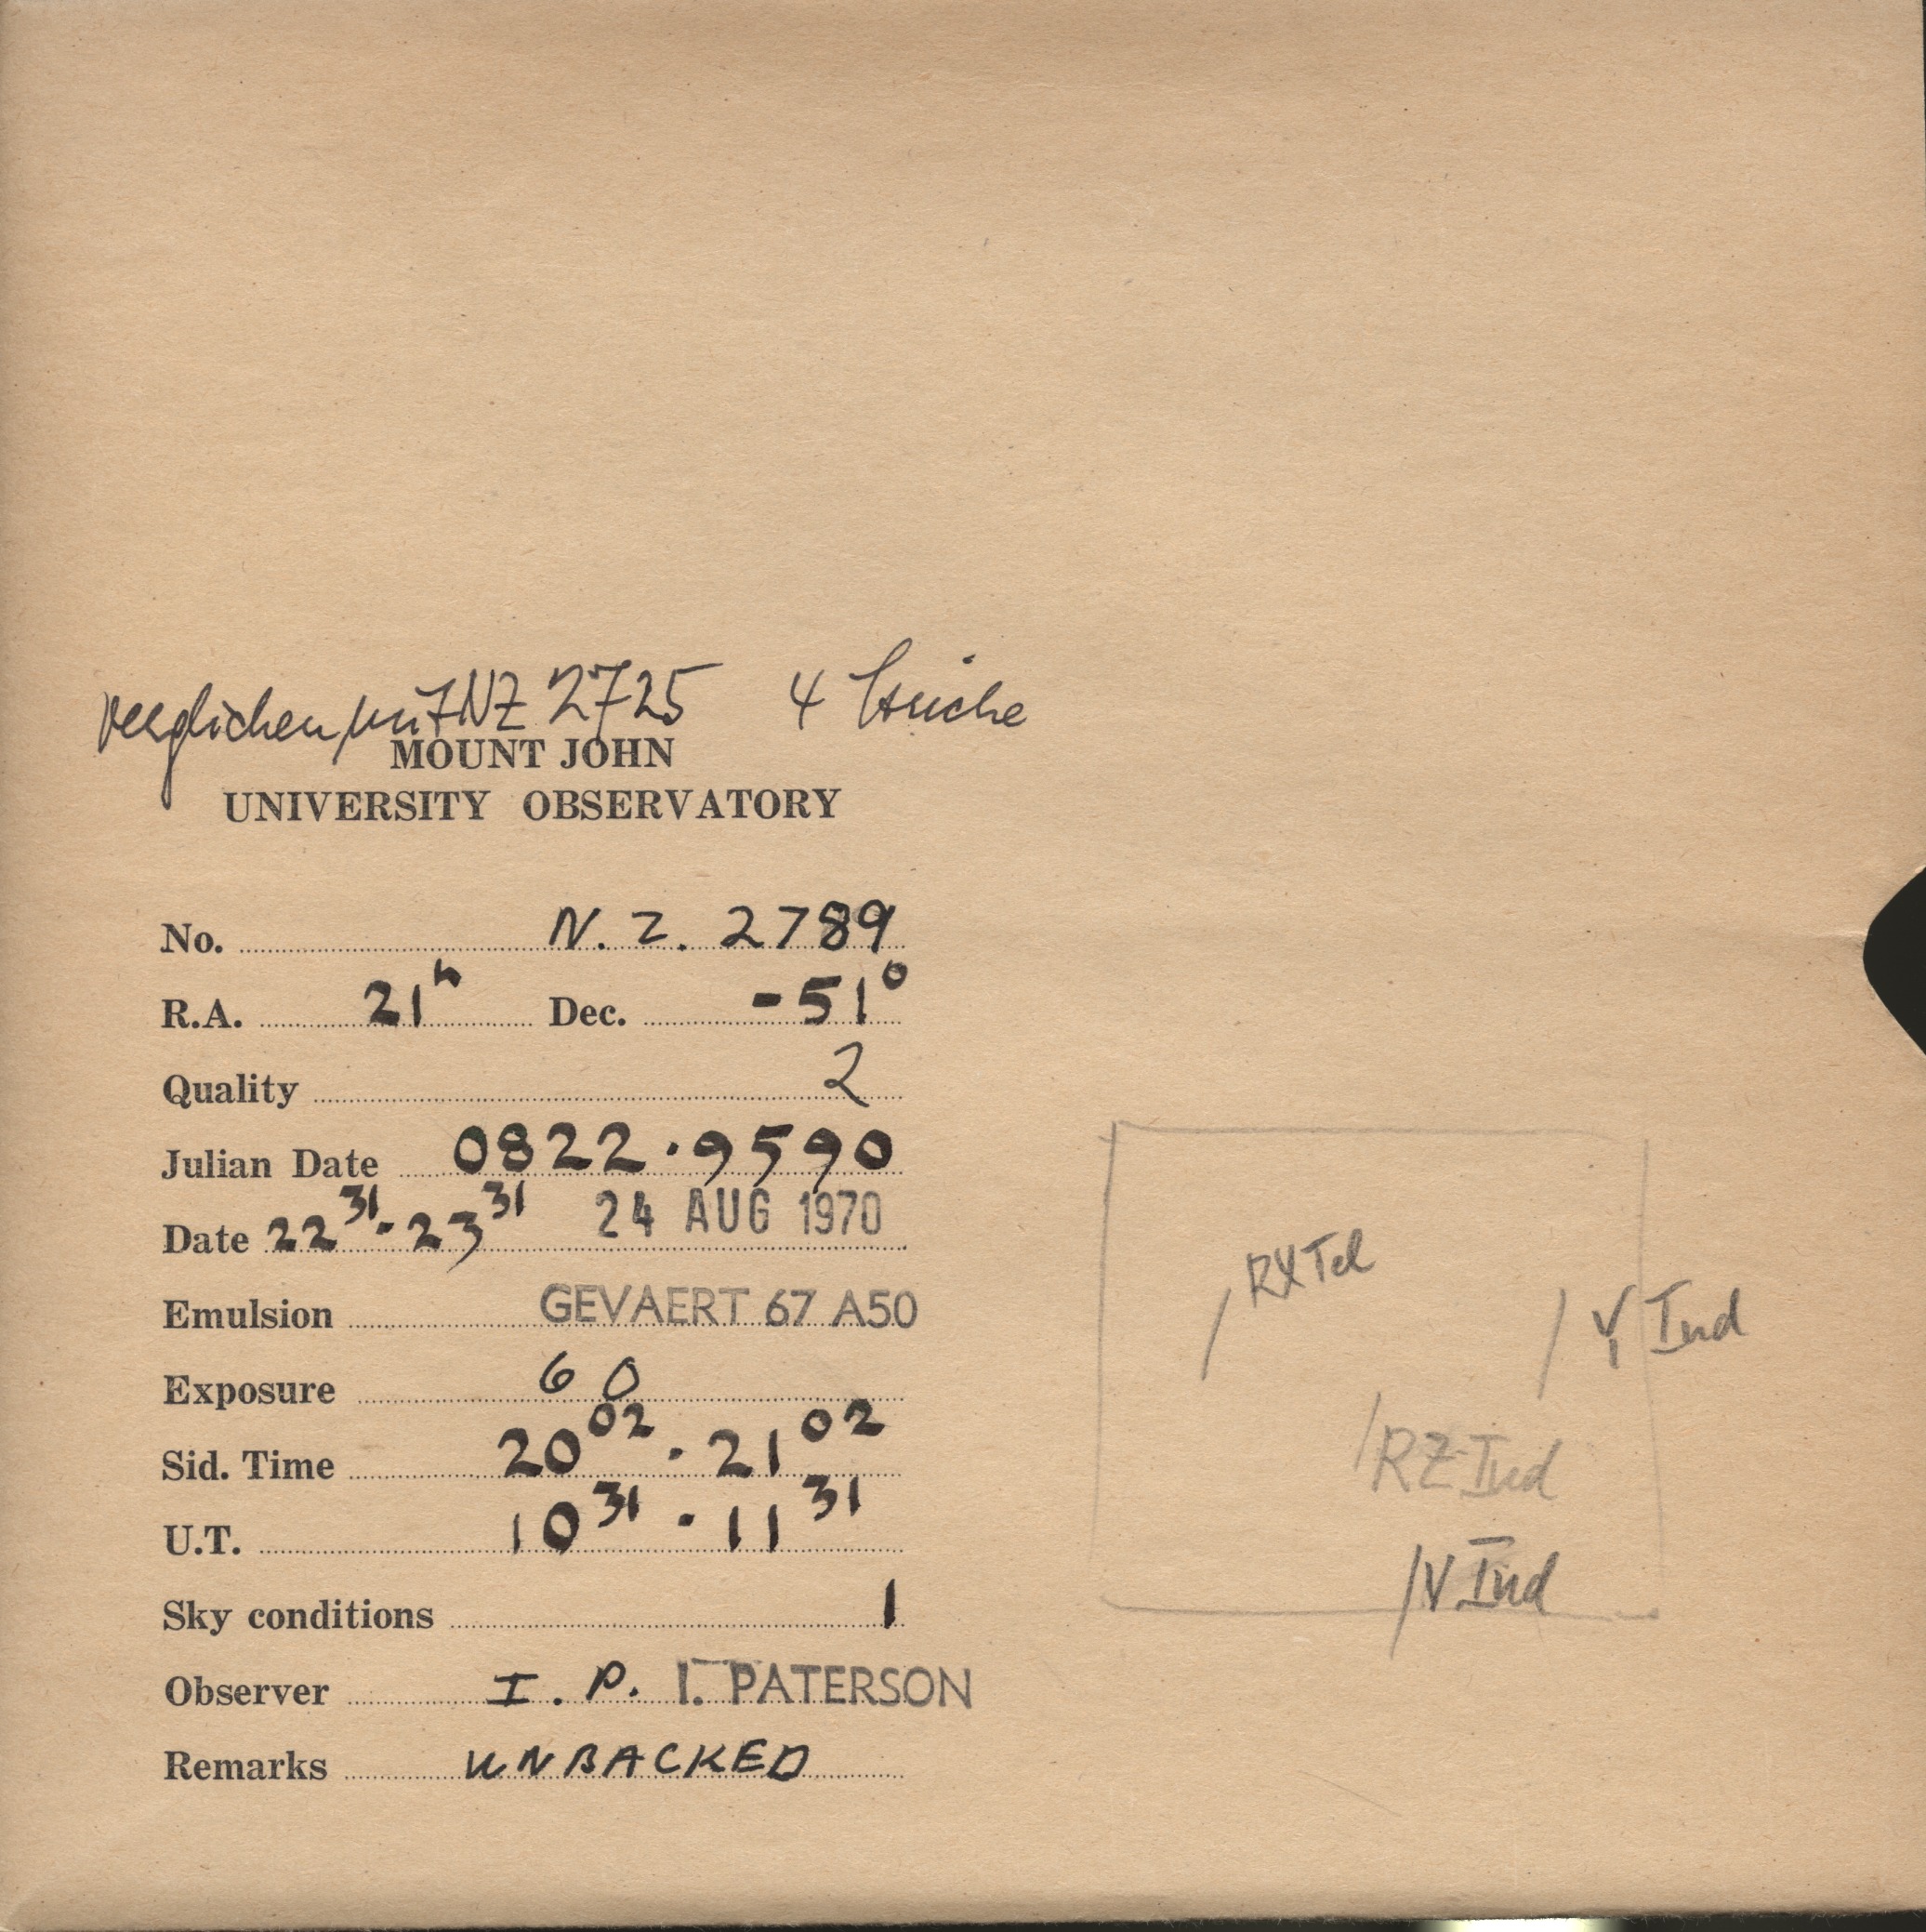 verglichen mit NZ 2725 4 Striche
MOUNT JOHN
UNIVERSITY OBSERVATORY
No. N. Z. 2789
R.A. 21h Dec. -51°
Quality 2
Julian Date 0822.9590
Date 22 31 - 23 31 24 AUG 1970
Emulsion GEVAERT 67 A50
Exposure 60
Sid. Time 20 02 - 21 02
U.T. 10 31 - 11 31
Sky conditions 1
Observer I. P. I. PATERSON
Remarks UNBACKED
RX Tel
Ind
RZ Ind
V Ind